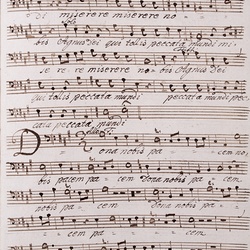 di miserere miserere no
bis Agnus Dei qui tollis peccata mundi mi
se re re miserere no bis Agnus Dei
qui tollis peccata mundi peccata mundi pec
cata peccata mundi
Dona nobis pa cem no
bis pacem pa cem Dona nobis pa cem
nobis pa cem Dona nobis pa
cem pa cem Dona nobis pa